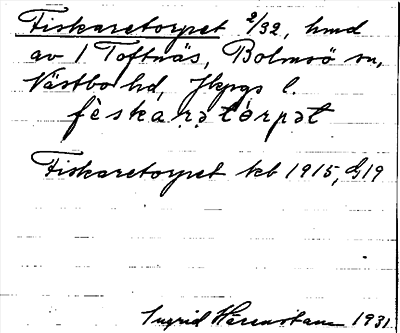 Fiskaretorpet 2/32, hmd
av 1 Toftnäs, Bolmsö sn,
Västbo hd, Jkpgs l.
fèskaṛətòrpət
Fiskaretorpet kb 1915, G19
Ingrid 1931